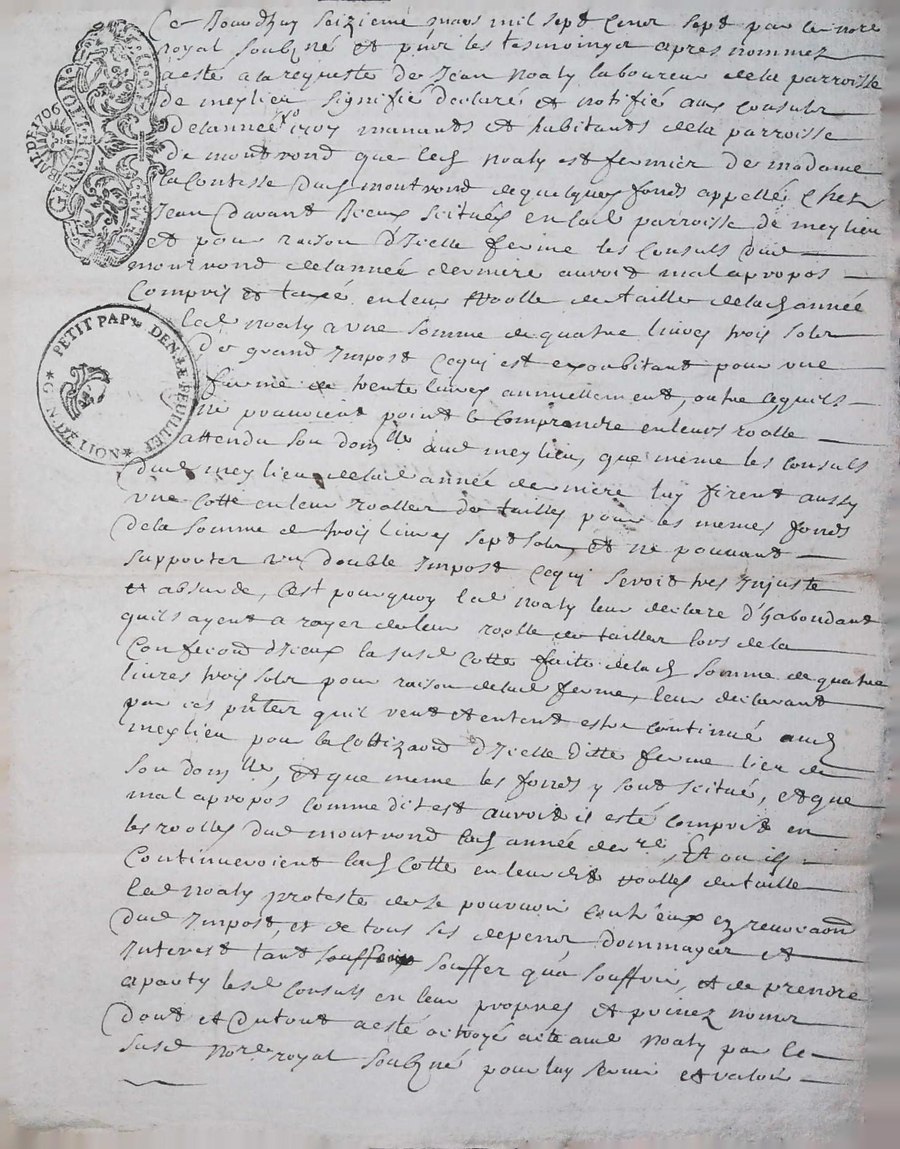 Ce Jourdhuy seizieme mars mil sept cent sept par le nore
royal soubzné et pnt les tesmoingtz apres nommez
a esté a la requeste de Jean noaly laboureur de la parroisse
de meylieu signiffié declaré et notifié aux consulz
de lannée manants et habitants de la parroisse
de montrond que led noaly est fermier de madame
la Contesse dud montrond de quelques fonds appellés Chez
Jean Davant Jceux scitués en lad parroisse de meylieu
et pour raison d'Jcelle ferme les Consuls dud
montrond de lannée derniere auroit mal apropos
Compris et taxé en leur roolle de taille de lad année
led noaly a une somme de quatre livres trois solz
De grand Jmpost ce qui est exorbitant pour une
ferme de trente livres annuellement, outre ce quils
ne pouvoient point le comprendre en leurs roolle
attendu son domlle aud meylieu, que même les consuls
dud meylieu de lad année derniere luy firent aussy
une cotte en leur roolles de tailles pour les memes fonds
de la somme de trois livres sept solz, et ne pouvant
supporter un double Jmpost ce qui seroit tres Jnjuste
et absurde, C'est pourquoy led noaly leur declare d'habondant
quils ayent a rayer de leur roolle de tailles lors de la
Confection d'Jceux la susd Cotte faite de lad somme de quatre
livres trois solz pour raison de lad ferme, leur declarant
par ces pntes quil veut et entent estre continué aud
meylieu pour la Cottizaõn d'Jcelle ditte ferme lieu de
son domlle, et que meme les fonds y sont scitué, et que
mal apropos comme dit est auroit il esté compris en
les roolles dud montrond lad année dere. Et ou ils
Continueroient lad Cotte en leur dit roolles de taille
led noaly proteste de se pouvoir contr'eux en revocaõn
dud Jmpost, et de tous ses depens dommages et
Jnterest tant souffer qua souffrir, et de prendre
a party lesd Consuls en leur propres et privez noms
Dont et du tout a esté octroyé acte aud noaly par le
susd nore royal soubzné pour luy servir et valoir
G. DE LION
GENERALITÉ DE LION
BAIL DE 1706
PETIT PAPr DEMIE FEUILLET